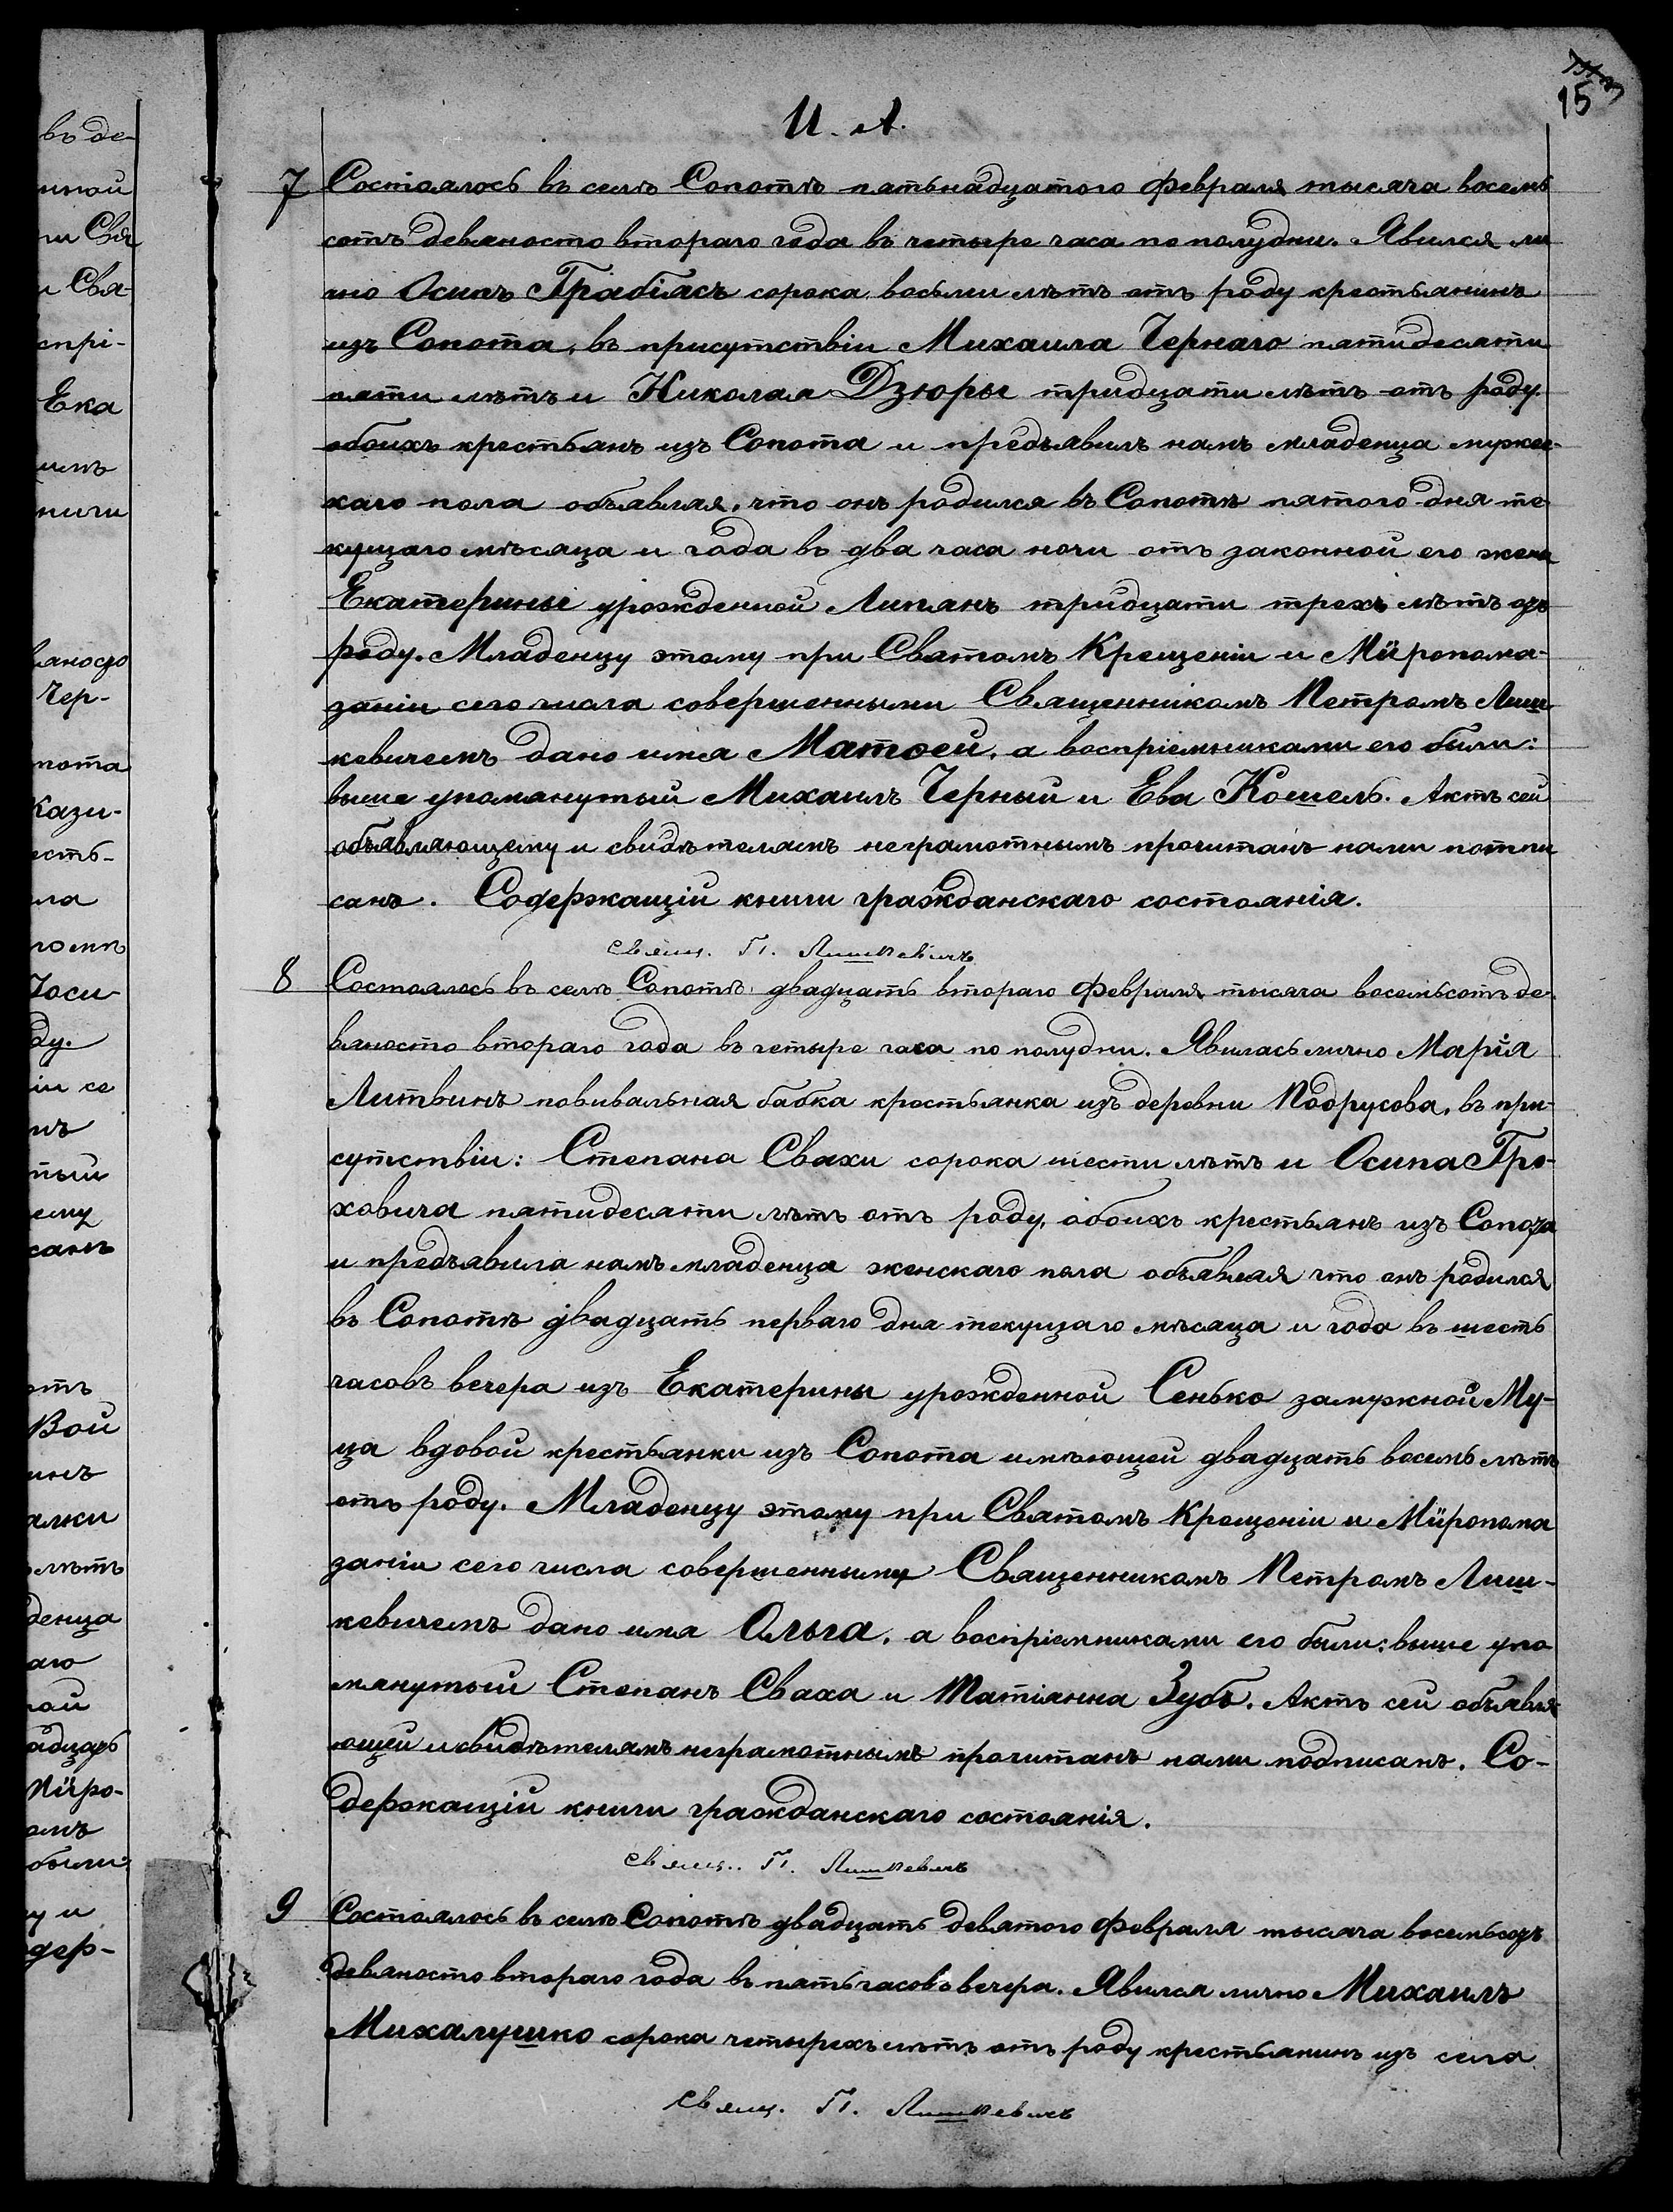 15
И. А.
7 Состоялось въ селѣ Сопотѣ пятьнадцатого Февраля тысяча восемь
сотъ девяносто втораго года въ четыре часа по полудни. Явился ли
чно Осипъ Грабіясъ сорока восьми лѣтъ отъ роду крестьянинъ
изъ Сопота, въ присутствіи Михаила Чернаго пятидесяти
пяти лѣтъ и Николая Дзюры тридцати лѣтъ отъ роду
обоихъ крестьянъ изъ Сопота и предъявилъ намъ младенца мужес-
каго пола объявляя, что онъ родился въ Сопотѣ пятого дня те
кущаго мѣсяца и года въ два часа ночи отъ законной его жены
Екатерины урожденной Липянъ тридцати трехъ лѣтъ отъ
роду. Младенцу этому при Святомъ Крещеніи и Мѵропома-
заніи сего числа совершенными Священникомъ Петромъ Лиш-
кевичемъ дано имя Матѳей, а воспріемниками его были:
выше упомянутый Михаилъ Черный и Ева Кошель. Актъ сей
объявляющему и свидѣтелямъ неграмотнымъ прочитанъ нами потпи
санъ. Содержащій книги гражданскаго состоянія.
свящ. П. Лишкевичъ
8 Состоялось въ селѣ Сопотѣ двадцать втораго Февраля тысяча восемьсотъ де-
вяносто втораго года въ четыре часа по полудни. Явилась лично Марія
Литвинъ повивальная бабка крестьянка изъ деревни Подрусова, въ при-
сутствіи: Степана Свахи сорока шести лѣтъ и Осипа Гро-
ховича пятидесяти лѣтъ отъ роду, обоихъ крестьянъ изъ Сопота
и предъявила намъ младенца женскаго пола объявляя что онъ родился
въ Сопотѣ двадцать перваго дня текущаго мѣсяца и года въ шесть
часовъ вечера изъ Екатерины урожденной Сенько замужной Му-
ца вдовой крестьянки изъ Сопота имѣющей двадцать восемь лѣтъ
отъ роду. Младенцу этому при Святомъ Крещеніи и Мѵропома
заніи сего числа совершенныму Священникомъ Петромъ Лиш-
кевичемъ дано имя Ольга, а воспріемниками его были: выше упо
мянутый Степанъ Сваха и Татіанна Зубъ. Актъ сей объявля
ющей и свидѣтелямъ неграмотнымъ прочитанъ нами подписанъ. Со-
держащій книги гражданскаго состоянія.
свящ. П. Лишкевичъ
9 Состоялось въ селѣ Сопотѣ двадцать девятого Февраля тысяча восемьсотъ
девяносто втораго года въ пять часовъ вечера. Явился лично Михаилъ
Михалушко сорока четырехъ лѣтъ отъ роду крестьянинъ изъ села
свящ. П. Лишкевичъ